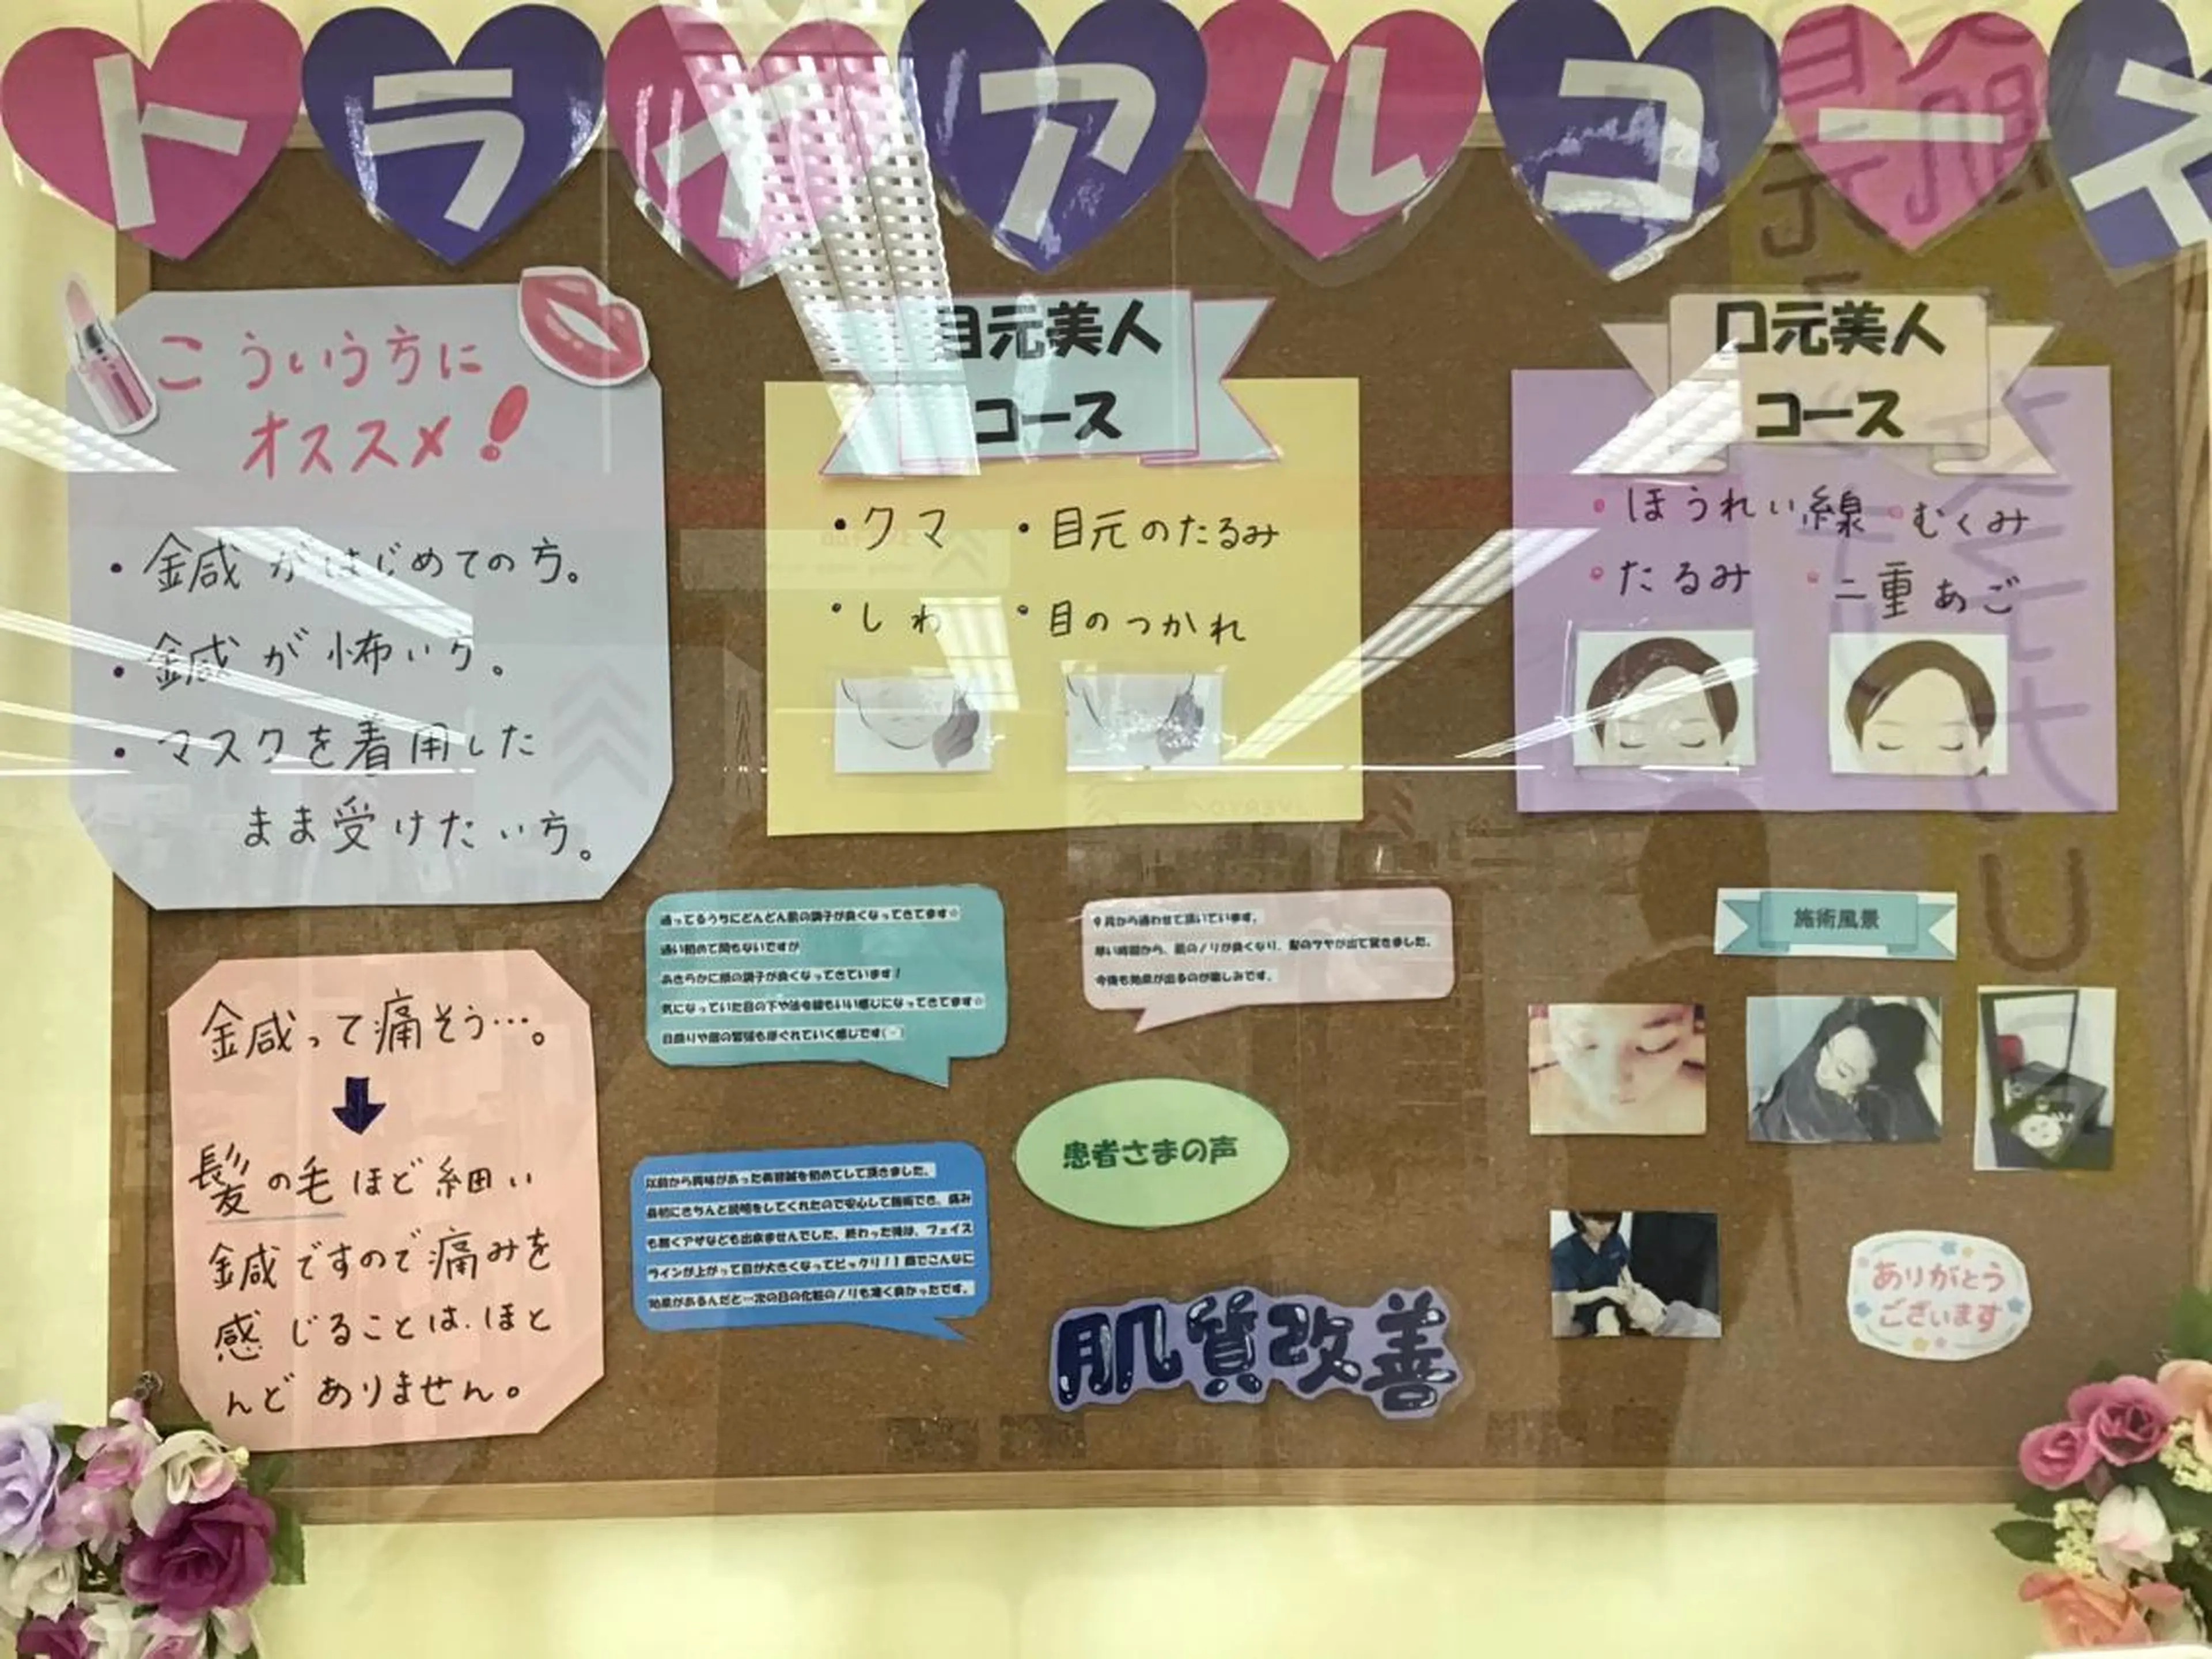 トライアルコーネ
こういう方に
オススメ!
・鍼がはじめての方。
・鍼が怖い方。
・マスクを着用した
まま受けたい方。
目元美人
コース
・クマ ・目元のたるみ
・しわ ・目のつかれ
口元美人
コース
・ほうれい線 ・むくみ
・たるみ ・二重あご
鍼って痛そう…。
髪の毛ほど細い
鍼ですので痛みを
感じることは、ほと
んどありません。
通ってるうちにどんどん肌の調子が良くなってきてます☆
通い初めて間もないですが
あきらかに顔の調子が良くなってきています!
気になっていた目の下や法令線もいい感じになってきてます☆
目周りや顔の緊張もほぐれていく感じです
9月から通わせて頂いています。
早い時期から、肌のノリが良くなり、髪のツヤが出て驚きました。
今後も効果が出るのが楽しみです。
患者さまの声
以前から興味があった美容鍼を初めてして頂きました。
最初にきちんと説明をしてくれたので安心して施術でき、痛み
も無くアザなども出来ませんでした。終わった後は、フェイス
ラインが上がって目が大きくなってビックリ!1回でこんなに
効果があるんだと…次の日の化粧のノリも凄く良かったです。
肌質改善
施術風景
ありがとう
ございます